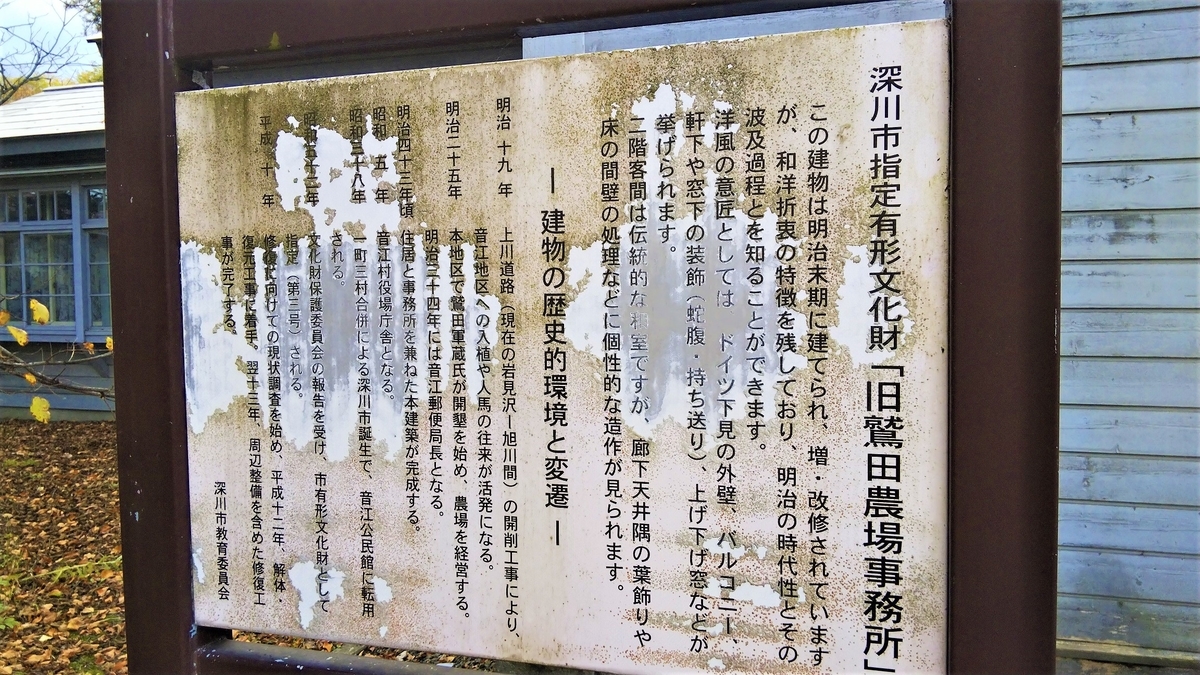 深川市指定有形文化財「旧鷲田農場事務所」
この建物は明治末期に建てられ、増・改修されています
が、和洋折衷の特徴を残しており、明治の時代性とその
波及過程とを知ることができます。
洋風の意匠としては ドイツ下見の外壁、バルコニー、
軒下や窓下の装飾（蛇腹・持ち送り）、上げ下げ窓などが
挙げられます。
二階客間は伝統的な和室ですが、廊下天井隅の葉飾りや
床の間壁の処理などに個性的な造作が見られます。
― 建物の歴史的環境と変遷 ―
明治 十九 年 上川道路（現在の岩見沢ー旭川間）の開削工事により、
音江地区への入植や人馬の往来が活発になる。
明治二十五年 本地区で鷲田軍蔵氏が開墾を始め、農場を経営する。
明治三十四年には音江郵便局長となる。
明治四十三年頃 住居と事務所を兼ねた本建築が完成する。
昭和 五 年 音江村役場庁舎となる。
昭和三十八年 一町三村合併による深川市誕生で、音江公民館に転用
される。
昭和 十二年 文化財保護委員会の報告を受け、市有形文化財として
指定（第三号）される。
平成 十 年 修復に向けての現状調査を始め、平成十二年、解体・
復元工事に着手。翌十三年、周辺整備を含めた修復工
事が完了する。
深川市教育委員会